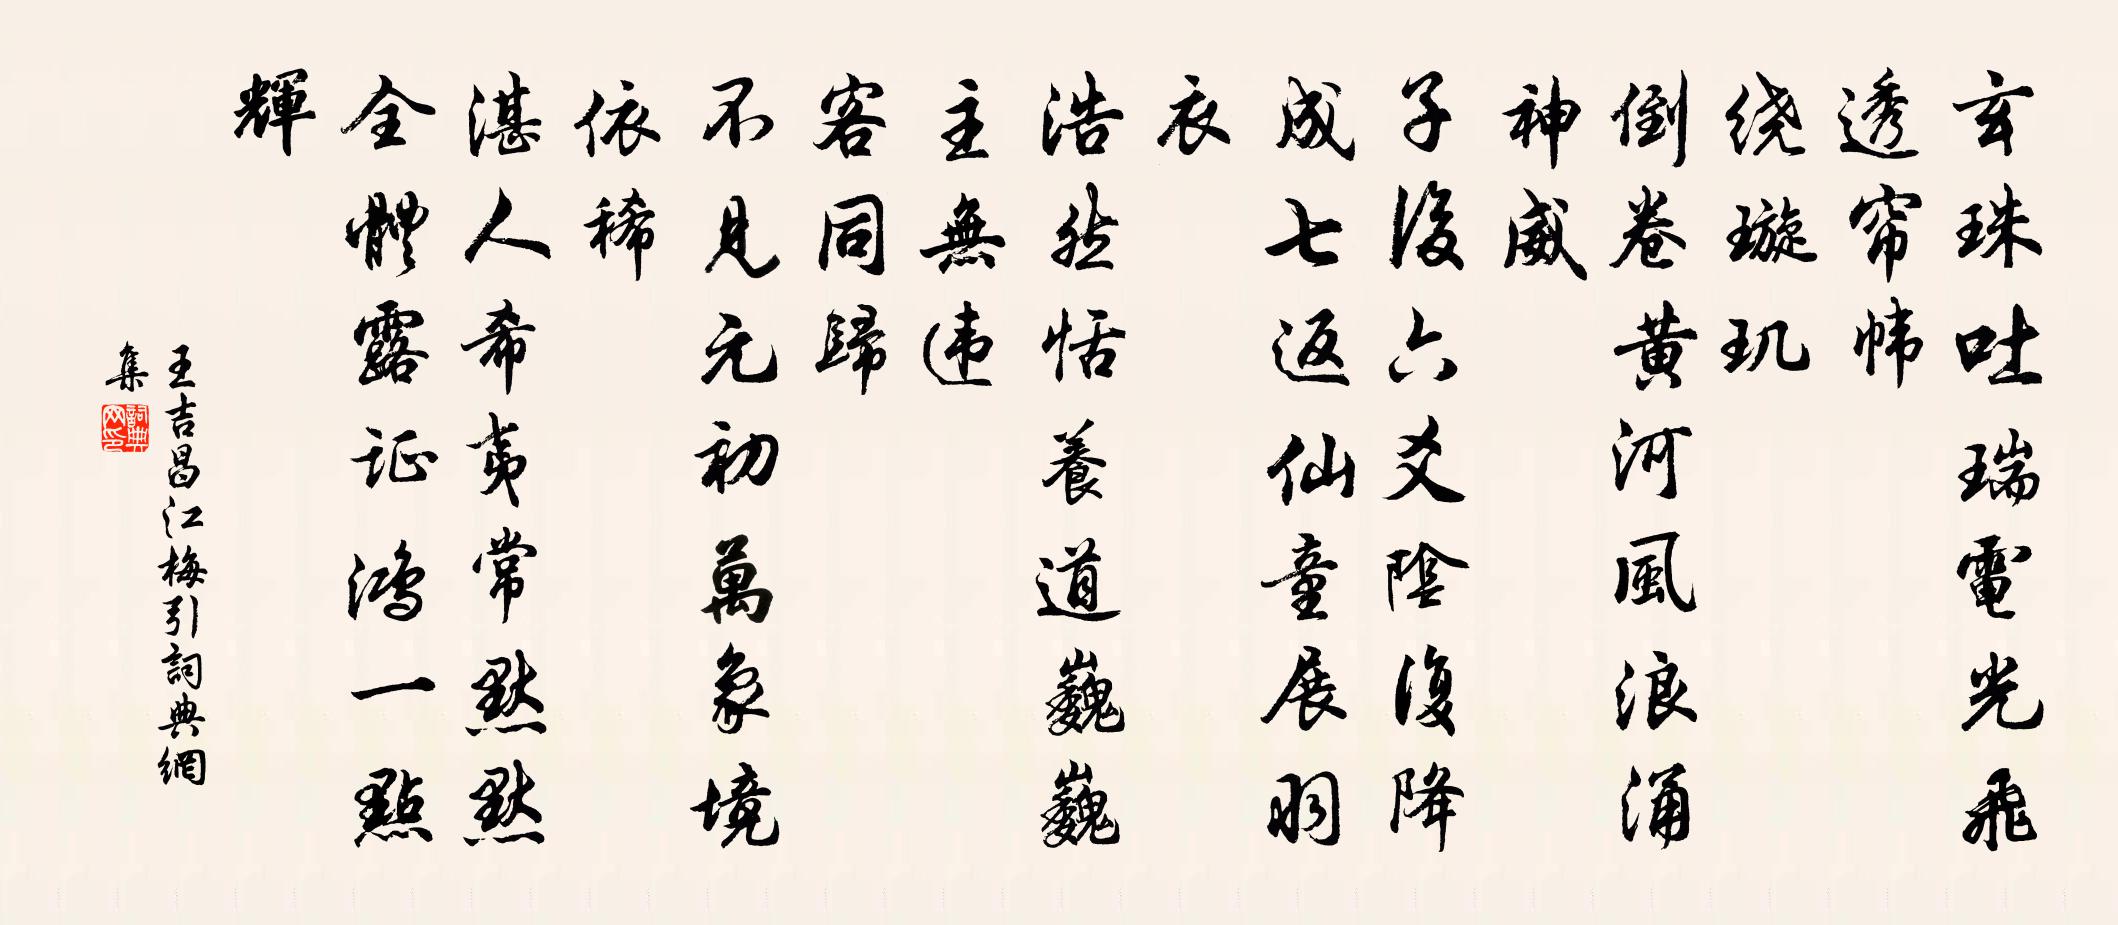 玄珠吐瑞電光飛
透帘幃
绕璇玑
倒卷黄河風浪涌
神威
子後六爻陰復降
成七返仙童展羽
衣
浩然恬養道巍巍
主無违
客同歸
不見元初萬象境
依稀
湛人希夷常默默
全體露证鸿一點
輝
王吉昌江梅引詞典網
集
詞典网印